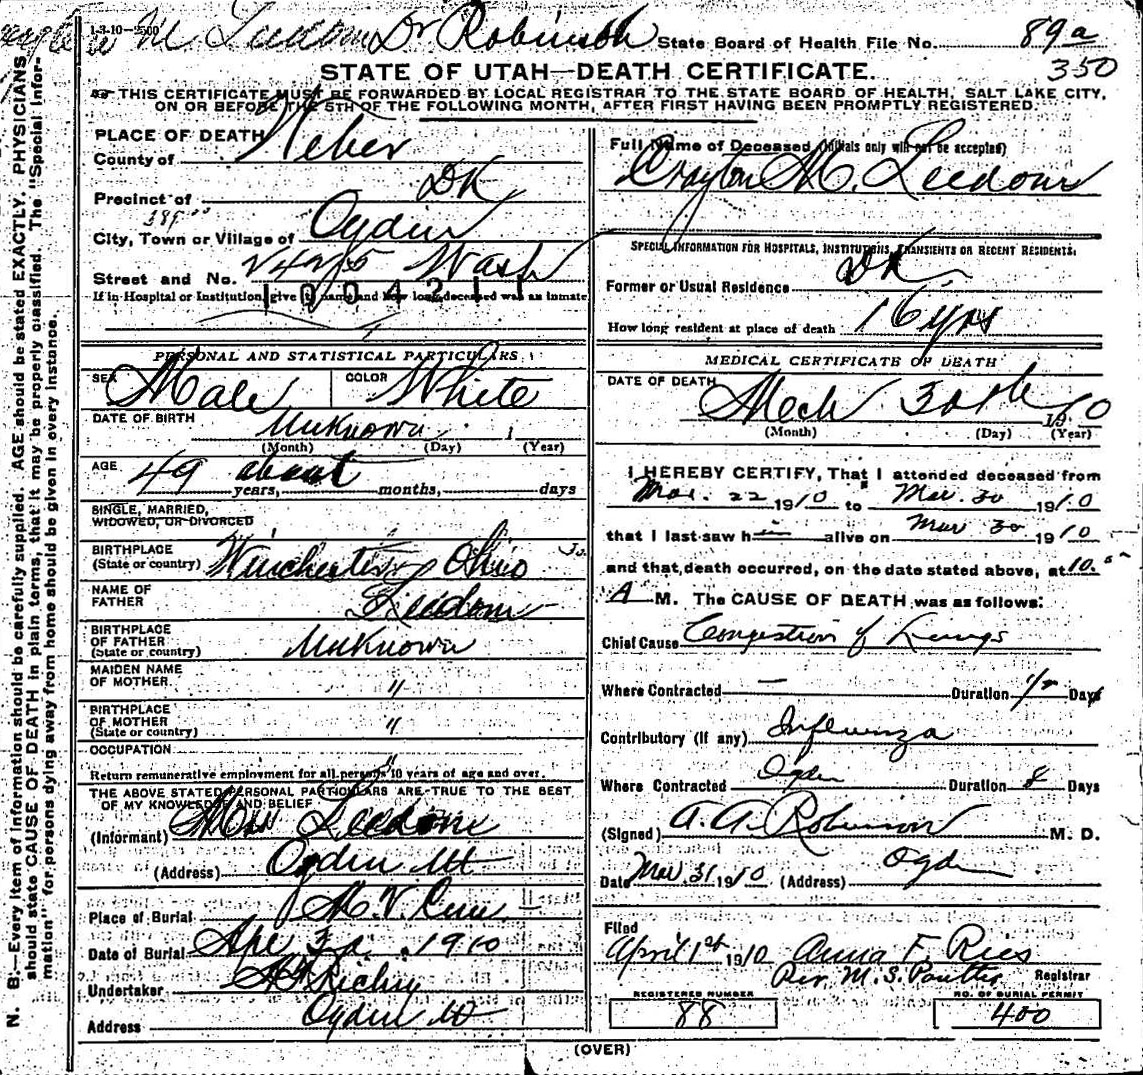 1-3-10-2500
M Leedom Dr Robinson
State Board of Health File No. 89a
350
STATE OF UTAH—DEATH CERTIFICATE.
THIS CERTIFICATE MUST BE FORWARDED BY LOCAL REGISTRAR TO THE STATE BOARD OF HEALTH, SALT LAKE CITY,
ON OR BEFORE THE 5TH OF THE FOLLOWING MONTH, AFTER FIRST HAVING BEEN PROMPTLY REGISTERED.
N. B.—Every item of information should be carefully supplied. AGE should be stated EXACTLY. PHYSICIANS
should state CAUSE OF DEATH in plain terms, that it may be properly classified. The "Special Infor-
mation" for persons dying away from home should be given in every instance.
PLACE OF DEATH
County of Weber
Precinct of DK
City, Town or Village of Ogden
Street and No. 2425 Wash
If in Hospital or Institution, give its name and how long deceased was an inmate
PERSONAL AND STATISTICAL PARTICULARS
SEX Male COLOR White
DATE OF BIRTH Unknown 1
(Month) (Day) (Year)
AGE 49 about
years, months, days
SINGLE, MARRIED,
WIDOWED, OR DIVORCED
BIRTHPLACE
(State or country) Winchester Ohio
NAME OF
FATHER Leedom
BIRTHPLACE
OF FATHER
(State or country) Unknown
MAIDEN NAME
OF MOTHER "
BIRTHPLACE
OF MOTHER
(State or country) "
OCCUPATION "
Return remunerative employment for all persons 10 years of age and over.
THE ABOVE STATED PERSONAL PARTICULARS ARE TRUE TO THE BEST
OF MY KNOWLEDGE AND BELIEF
(Informant) Leedom
(Address) Ogden Ut
Place of Burial M. V. Cem
Date of Burial Apr 1910
Undertaker Richey
Address Ogden Ut
Full Name of Deceased (Initials only will not be accepted)
Crayton M. Leedom
SPECIAL INFORMATION FOR HOSPITALS, INSTITUTIONS, TRANSIENTS OR RECENT RESIDENTS.
Former or Usual Residence DK
How long resident at place of death 16 yrs
MEDICAL CERTIFICATE OF DEATH
DATE OF DEATH Mch 30th 1910
(Month) (Day) (Year)
I HEREBY CERTIFY, That I attended deceased from
Mar. 22 1910 to Mar. 30 1910
that I last saw h alive on Mar 30 1910
and that death occurred, on the date stated above, at 10.
A M. The CAUSE OF DEATH was as follows:
Chief Cause Congestion of Lungs
Where Contracted — Duration Days
Contributory (If any) Influenza
Where Contracted Ogden Duration 8 Days
(Signed) A. A. Robinson M. D.
Date Mar. 31 1910 (Address) Ogden
Filed
April 1st 1910 Anna F. Ries
Per. M. S. Registrar
REGISTERED NUMBER
88
NO. OF BURIAL PERMIT
400
(OVER)